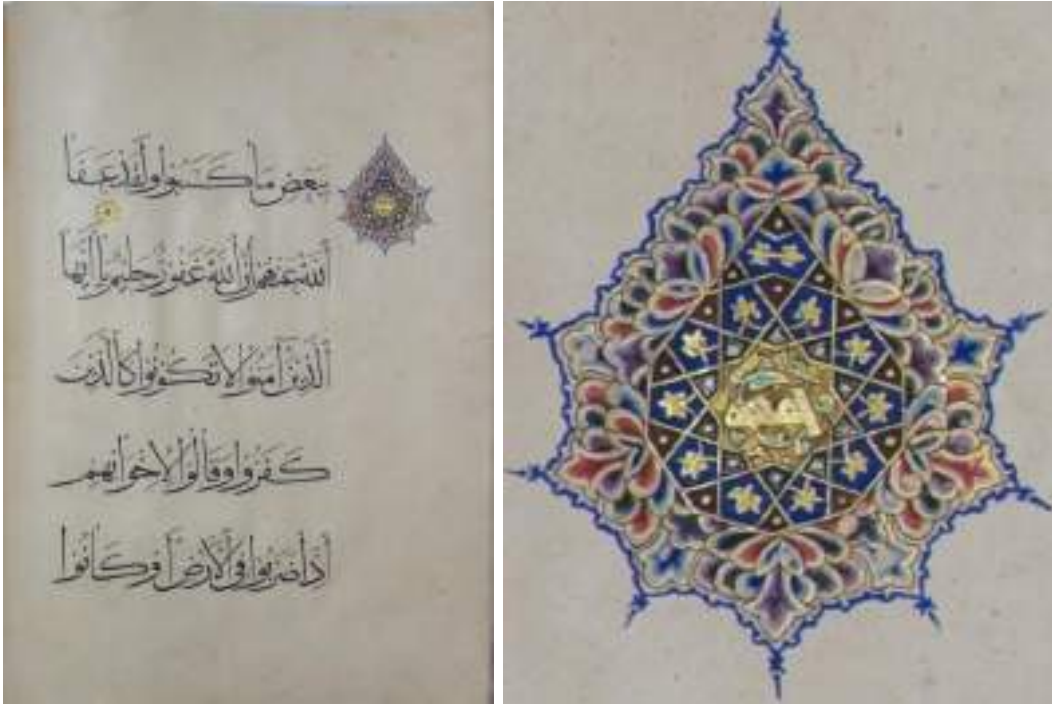 بِبَعْضِ مَا كَسَبُوا وَلَقَدْ عَفَا
اللّٰهُ عَنْهُمْ إِنَّ اللّٰهَ غَفُورٌ حَلِيمٌ يَا أَيُّهَا
الَّذِينَ آمَنُوا لَا تَكُونُوا كَالَّذِينَ
كَفَرُوا وَقَالُوا لِإِخْوَانِهِمْ
إِذَا ضَرَبُوا فِي الْأَرْضِ أَوْ كَانُوا